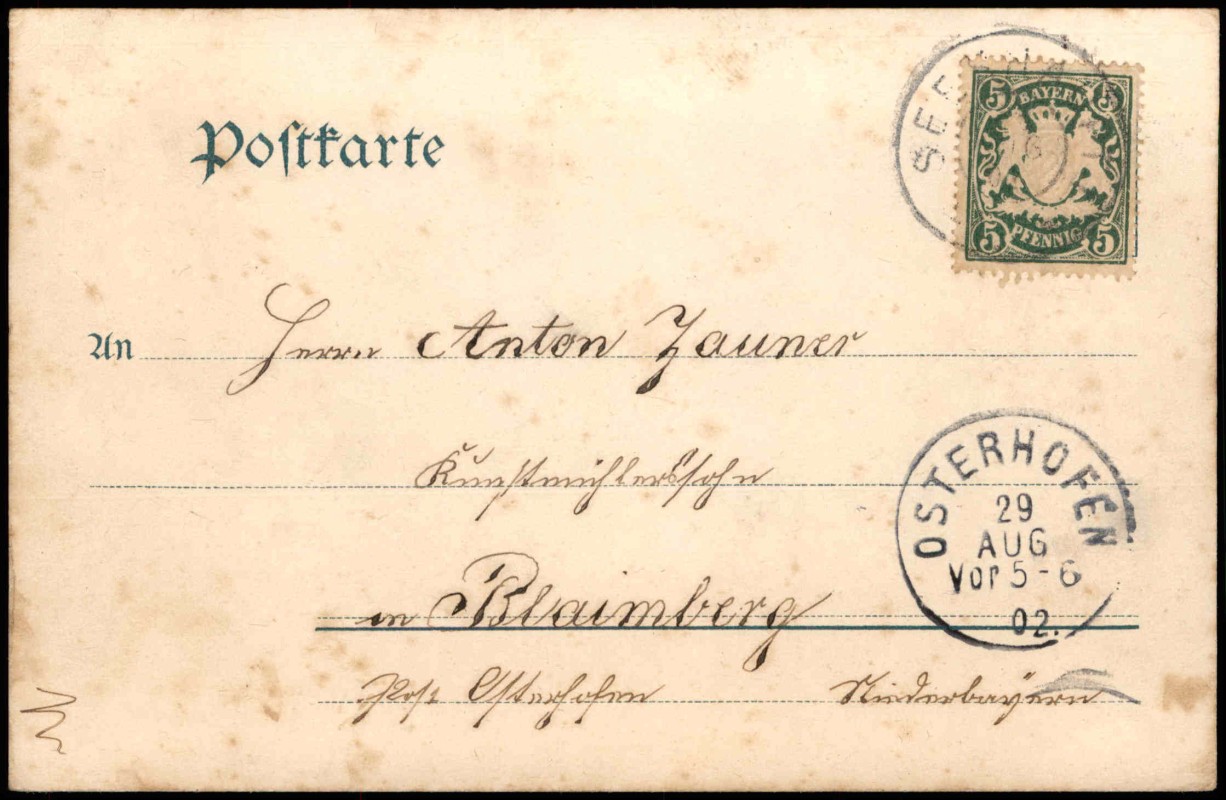 Postkarte
5 BAYERN 5
5 PFENNIG 5
An Herrn Anton Zauner
Kunstmühlerssohn
in Blaimberg
OSTERHOFEN
29
AUG
Vor 5-6
02.
Post Osterhofen Niederbayern